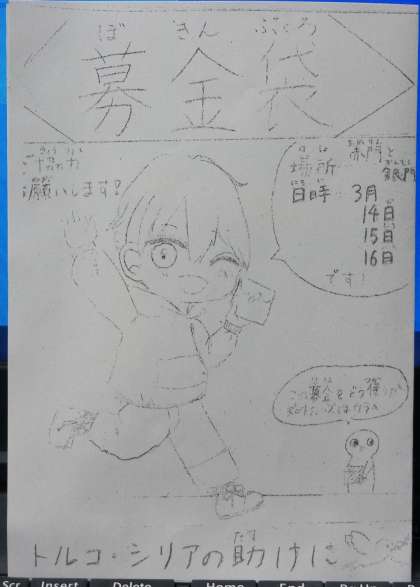 ぼきんぶくろ
募金袋
ご協力
お願いします!
場所 赤門と
銀門
日時 3月
14日
15日
16日
です!
この募金をどう使うか
トルコ・シリアの助けに
Scr Insert Delete Home End